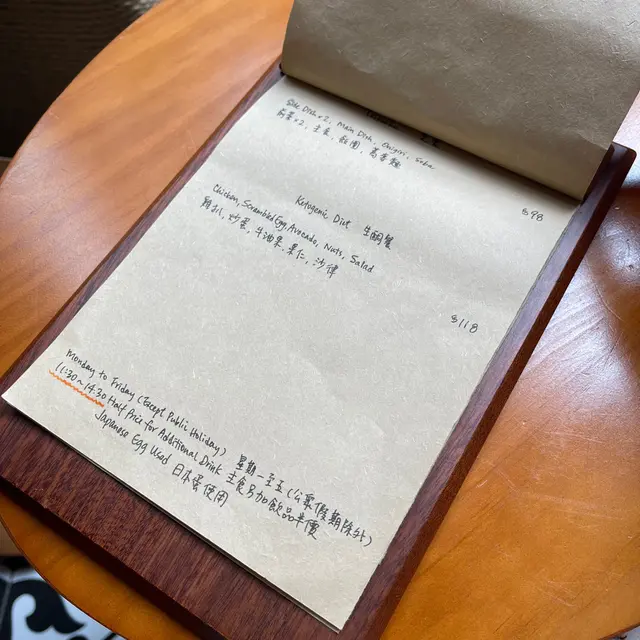 Side Dish x2, Main Dish, Onigiri, Soba
前菜x2, 主食, 飯團, 蕎麥麵
$98
Ketogenic Diet 生酮餐
Chicken, Scrambled Egg, Avocado, Nuts, Salad
雞扒, 炒蛋, 牛油果, 果仁, 沙律
$118
Monday to Friday (Except Public Holiday) 星期一至五(公眾假期除外)
11:30~14:30 Half Price for Additional Drink 主食另加飲品半價
Japanese Egg Used 日本蛋使用